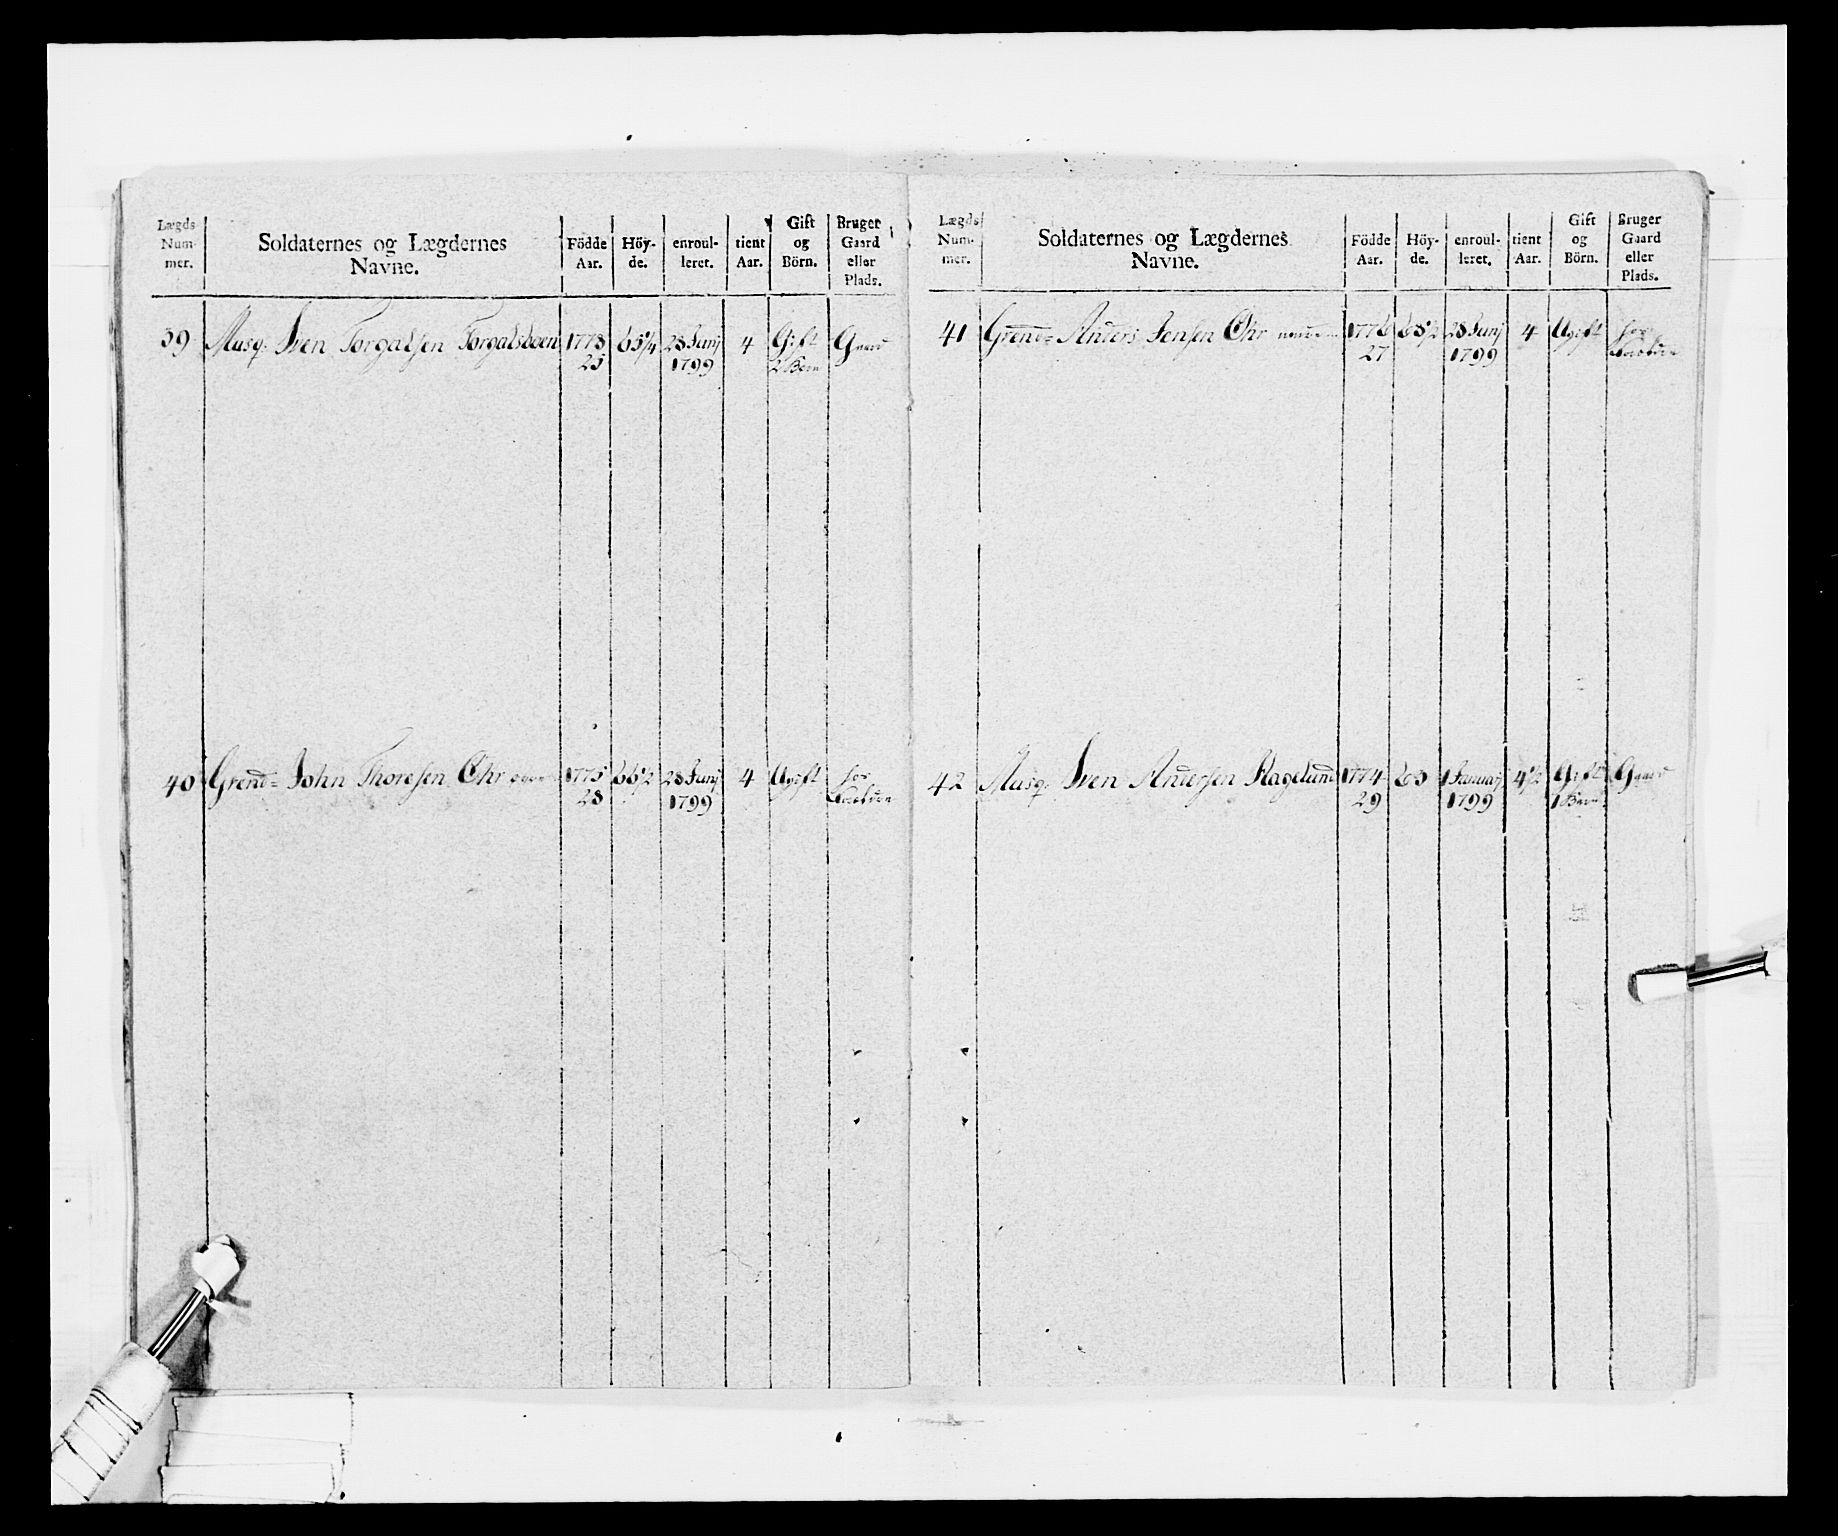 Lægds Num- mer. Soldaternes og Lægdernes Navne. Födde Aar. Höy- de. enroul- leret. tient Aar. Gift og Börn. Bruger Gaard eller Plads.
39 Musq. Sven Torgalsen Torgalsboen 1773 65 1/4 28 Junj 4 Gift Gaard
25 1799 2 Børn
40 Grend= John Thoresen Chr 1775 66 1/2 28 Junj 4 Ugift for
28 1799
Lægds Num- mer. Soldaternes og Lægdernes Navne. Födde Aar. Höy- de. enroul- leret. tient Aar. Gift og Börn. Bruger Gaard eller Plads.
41 Grend= Anders Jensen Chr 1776 68 1/2 28 Junj 4 Ugift for
27 1799
42 Musq. Sven Andersen Flagelund 1774 63 1 Januarj 4 1/2 Gift Gaard
29 1799 1 Barn